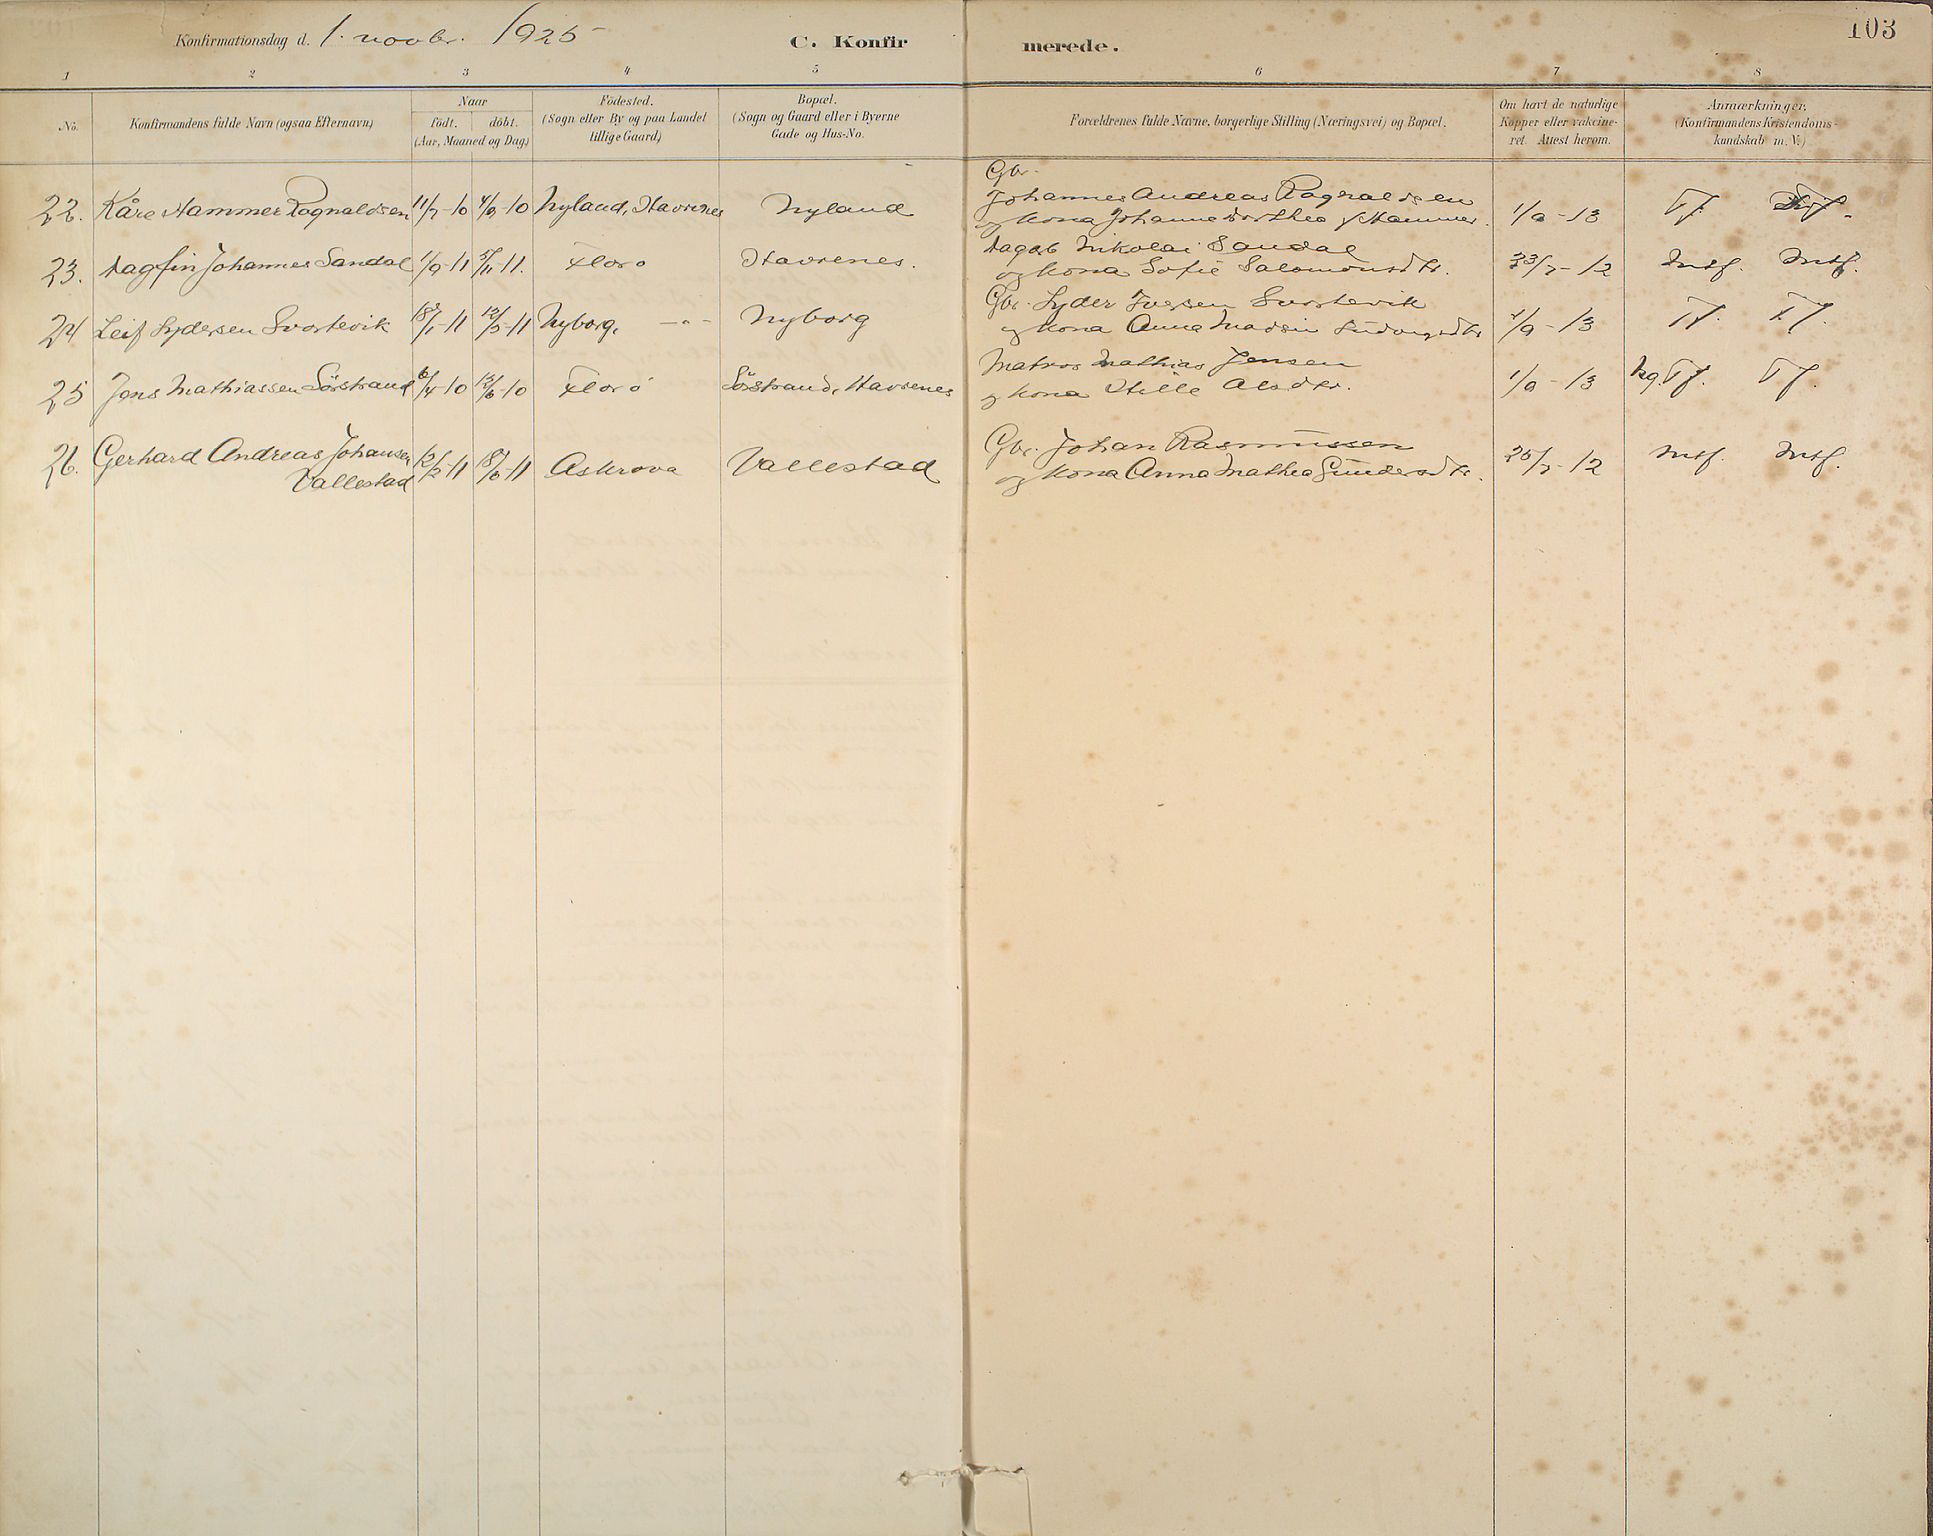 103
Konfirmationsdag d. 1. novbr. 1925
C. Konfirmerede.
1 2 3 4 5 6 7 8
No.
Konfirmandens fulde Navn (ogsaa Efternavn)
Naar
födt. döbt.
(Aar, Maaned og Dag)
Födested.
(Sogn eller By og paa Landet
tillige Gaard)
Bopæl.
(Sogn og Gaard eller i Byerne
Gade og Hus-No.
Forældrenes fulde Navne, borgerlige Stilling (Næringsvei) og Bopæl.
Om havt de naturlige
Kopper eller vakcine-
ret. Attest herom.
Anmærkninger,
(Konfirmandens Kristendoms-
kundskab m. V.)
Gbr.
22. Kåre Hammer Ragnaldsen 11/7-10 4/9-10 Nyland, Havrenes Nyland Johannes Andreas Ragnaldsen 1/9-13 Tf.
og kona Johanne Dorthea f. Hammer.
23. Dagfin Johannes Sandal 1/9-11 5/11-11. Florø Havrenes. Dagab. Nikolai Sandal
og kona Sofie Salomonsdtr. /7-12 Mtf. Mtf.
24 Leif Lydersen Svortevik 18/1-11 12/3-11 Nyborg, -"- Nyborg Gbr. Lyder Iversen Svortevik
og kona Anna Madsine /9-13 Tf. Tf.
25 Jens Mathiassen Sörstrand 6/4-10 12/6-10 Florö Sörstrand, Havrenes Matros Mathias Jensen
og kona Hille Alsdtr. 1/9-13 Ng. Tf. Tf.
26. Gerhard Andreas Johansen 12/2-11 18/6-11 Askrova Vallestad Gbr. Johan Rasmussen
Vallestad og kona Anna Mathea Gundersdtr. 25/7-12 Mtf. Mtf.